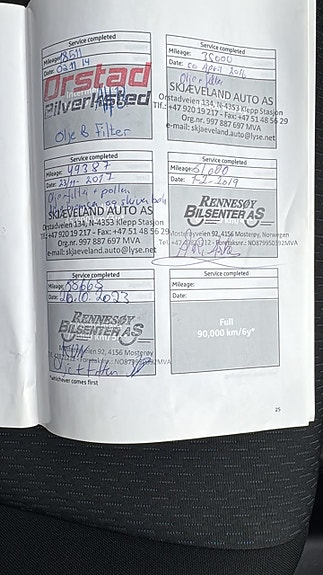 Service completed
Mileage: 18611
Date: 02.11.14
Ørstad
Bilverksted
Olje & Filter
Service completed
Mileage: 38000
Date: 20 April 2016
Olje + filter
SKJÆVELAND AUTO AS
Orstadveien 134, N-4353 Klepp Stasjon
Tlf.: +47 920 19 217 - Fax: +47 51 48 56 29
Org.nr. 997 887 697 MVA
e-mail: skjaeveland.auto@lyse.net
Service completed
Mileage: 49387
Date: 23/11-2017
Olje filter + pollen
og skiver bak
SKJÆVELAND AUTO AS
Orstadveien 134, N-4353 Klepp Stasjon
Tlf.: +47 920 19 217 - Fax: +47 51 48 56 29
Org.nr. 997 887 697 MVA
e-mail: skjaeveland.auto@lyse.net
Service completed
Mileage: 61000
Date: 2019
RENNESØY
BILSENTER AS
92, 4156 Mosterøy, Norwegen
Service completed
Mileage:
Date: 16.10.2023
RENNESØY
BILSENTER AS
92, 4156 Mosterøy
KUN
Olje + Filter
Service completed
Mileage:
Date:
Full
90,000 km/6y*
*whichever comes first
25